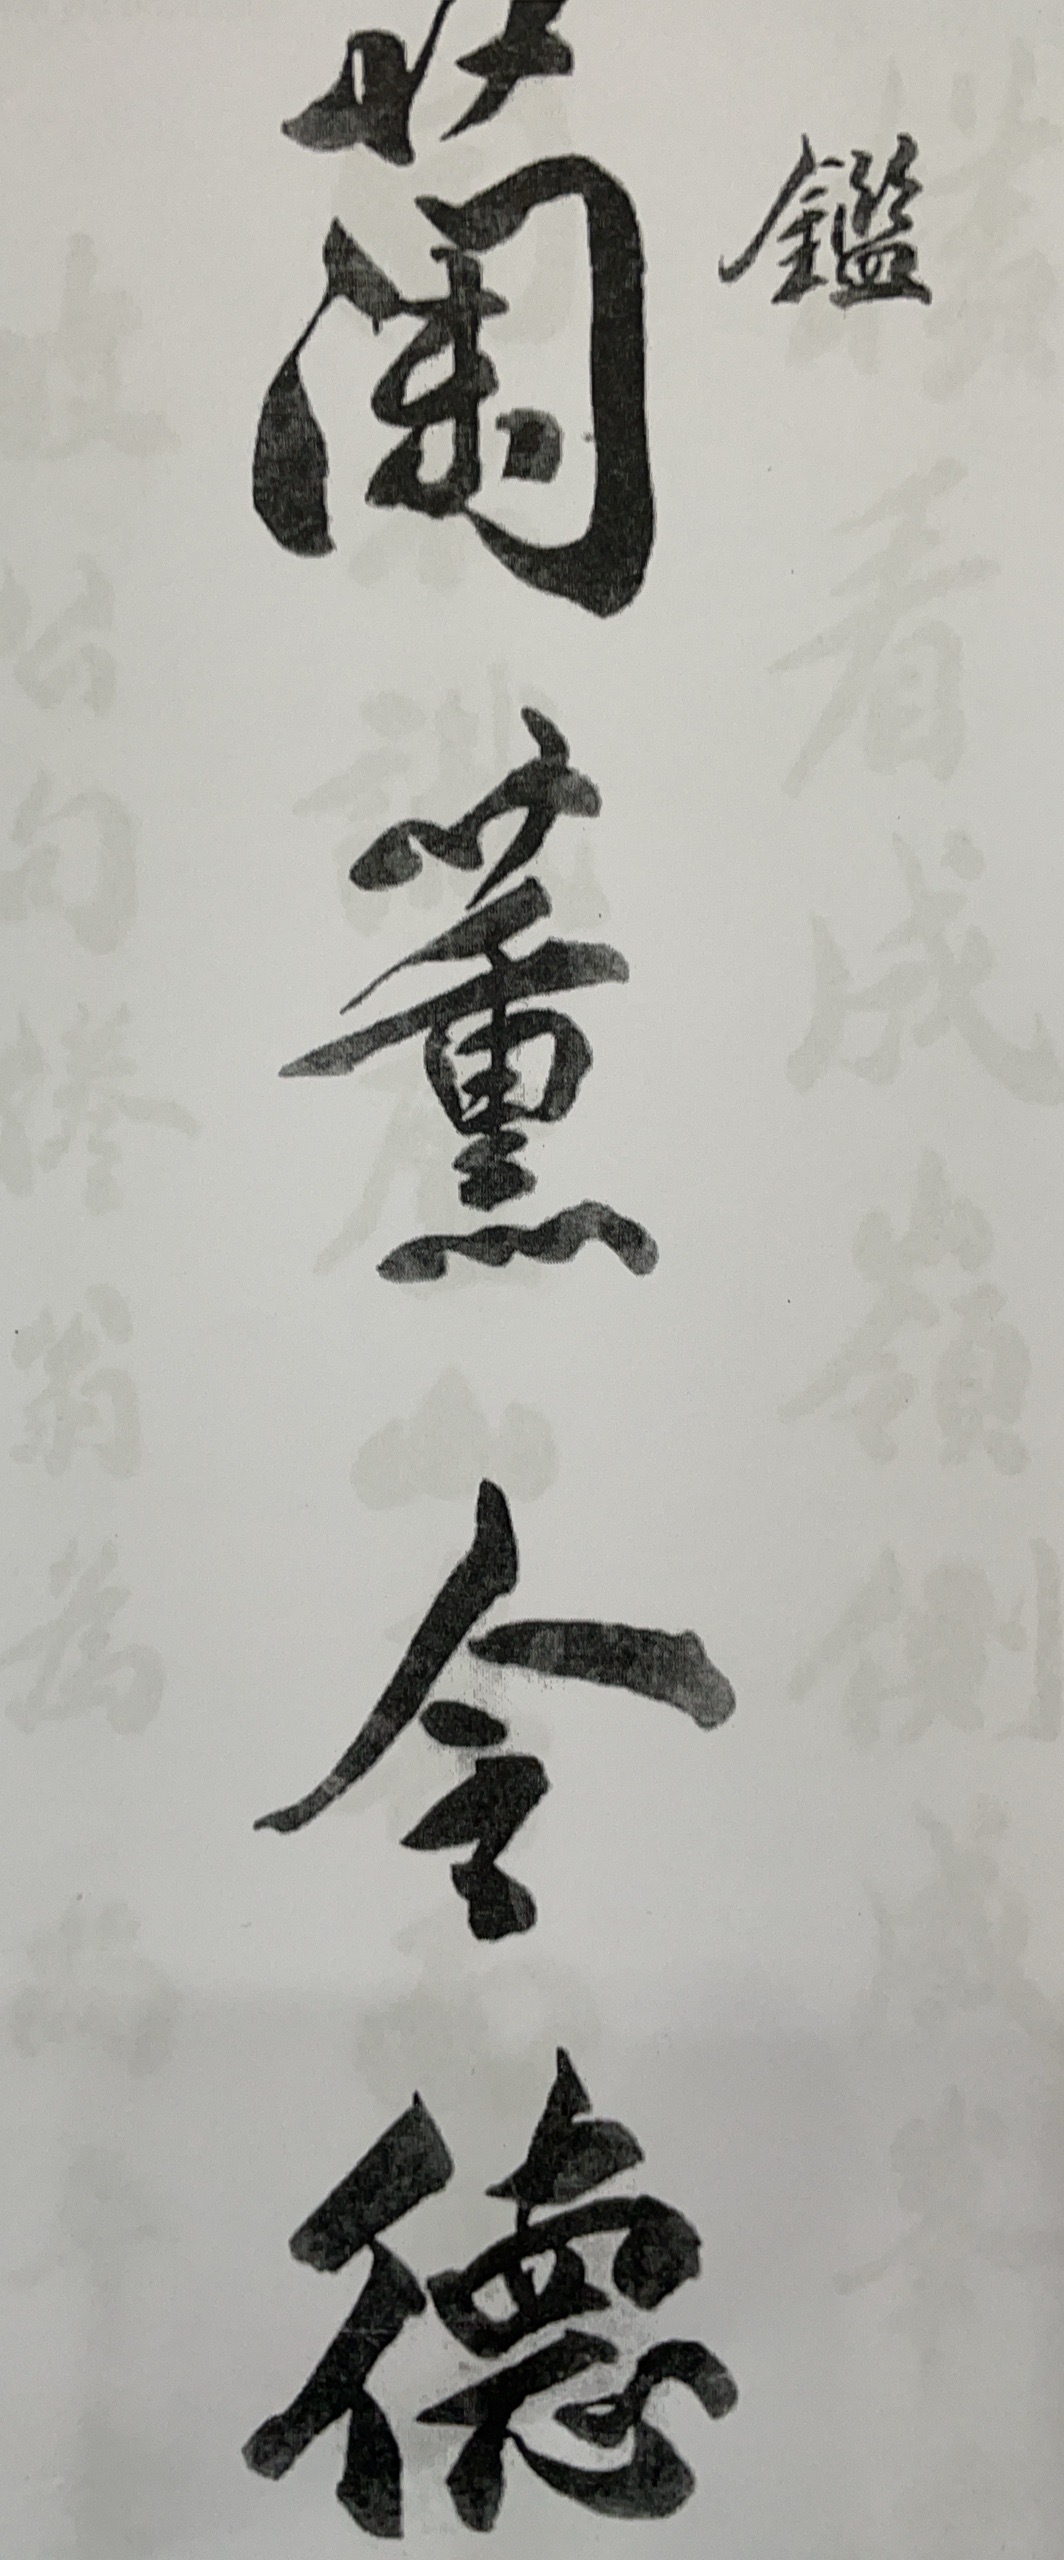 鑑
蘭薰令德